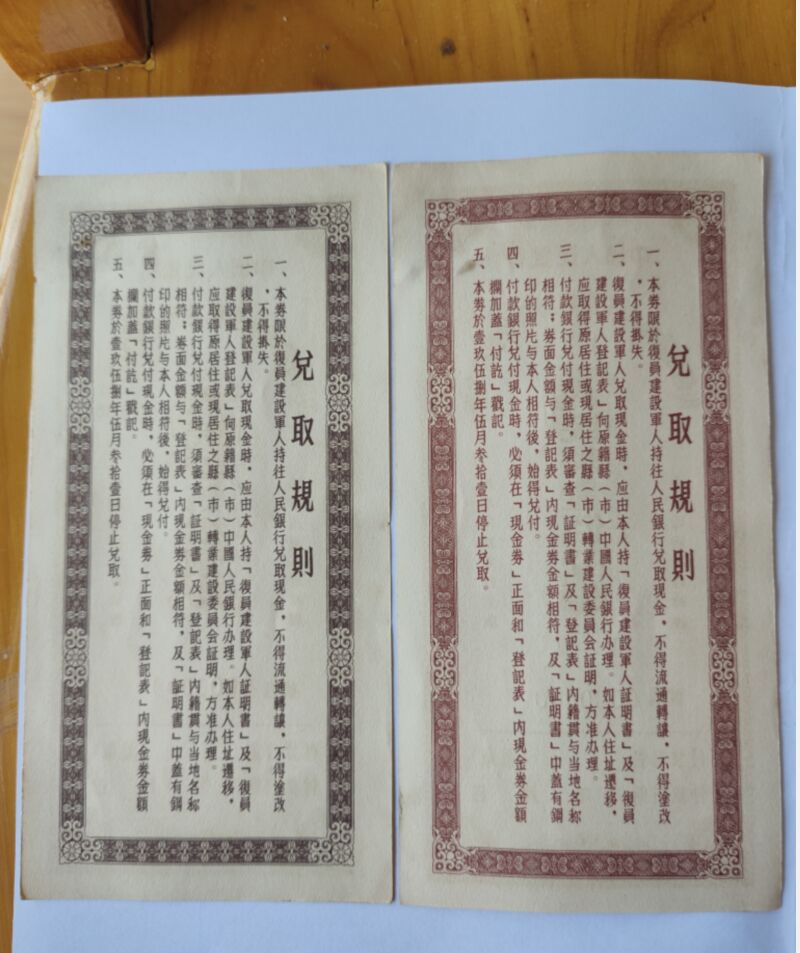 兌取規則
一、本券限於復員建設軍人持往人民銀行兌取現金，不得流通轉讓，不得塗改
，不得掛失。
二、復員建設軍人兌取現金時，應由本人持「復員建設軍人証明書」及「復員
建設軍人登記表」向原籍縣（市）中國人民銀行办理。如本人住址遷移，
應取得原居住或現居住之縣（市）轉業建設委員会証明，方准办理。
三、付款銀行兌付現金時，須審查「証明書」及「登記表」內籍貫与当地名称
相符；券面金額与「登記表」內現金券金額相符，及「証明書」中蓋有鋼
印的照片与本人相符後，始得兌付。
四、付款銀行兌付現金時，必須在「現金券」正面和「登記表」內現金券金額
欄加蓋「付訖」戳記。
五、本券於壹玖伍捌年伍月叁拾壹日停止兌取。
兌取規則
一、本券限於復員建設軍人持往人民銀行兌取現金，不得流通轉讓，不得塗改
，不得掛失。
二、復員建設軍人兌取現金時，應由本人持「復員建設軍人証明書」及「復員
建設軍人登記表」向原籍縣（市）中國人民銀行办理。如本人住址遷移，
應取得原居住或現居住之縣（市）轉業建設委員会証明，方准办理。
三、付款銀行兌付現金時，須審查「証明書」及「登記表」內籍貫与当地名称
相符；券面金額与「登記表」內現金券金額相符，及「証明書」中蓋有鋼
印的照片与本人相符後，始得兌付。
四、付款銀行兌付現金時，必須在「現金券」正面和「登記表」內現金券金額
欄加蓋「付訖」戳記。
五、本券於壹玖伍捌年伍月叁拾壹日停止兌取。